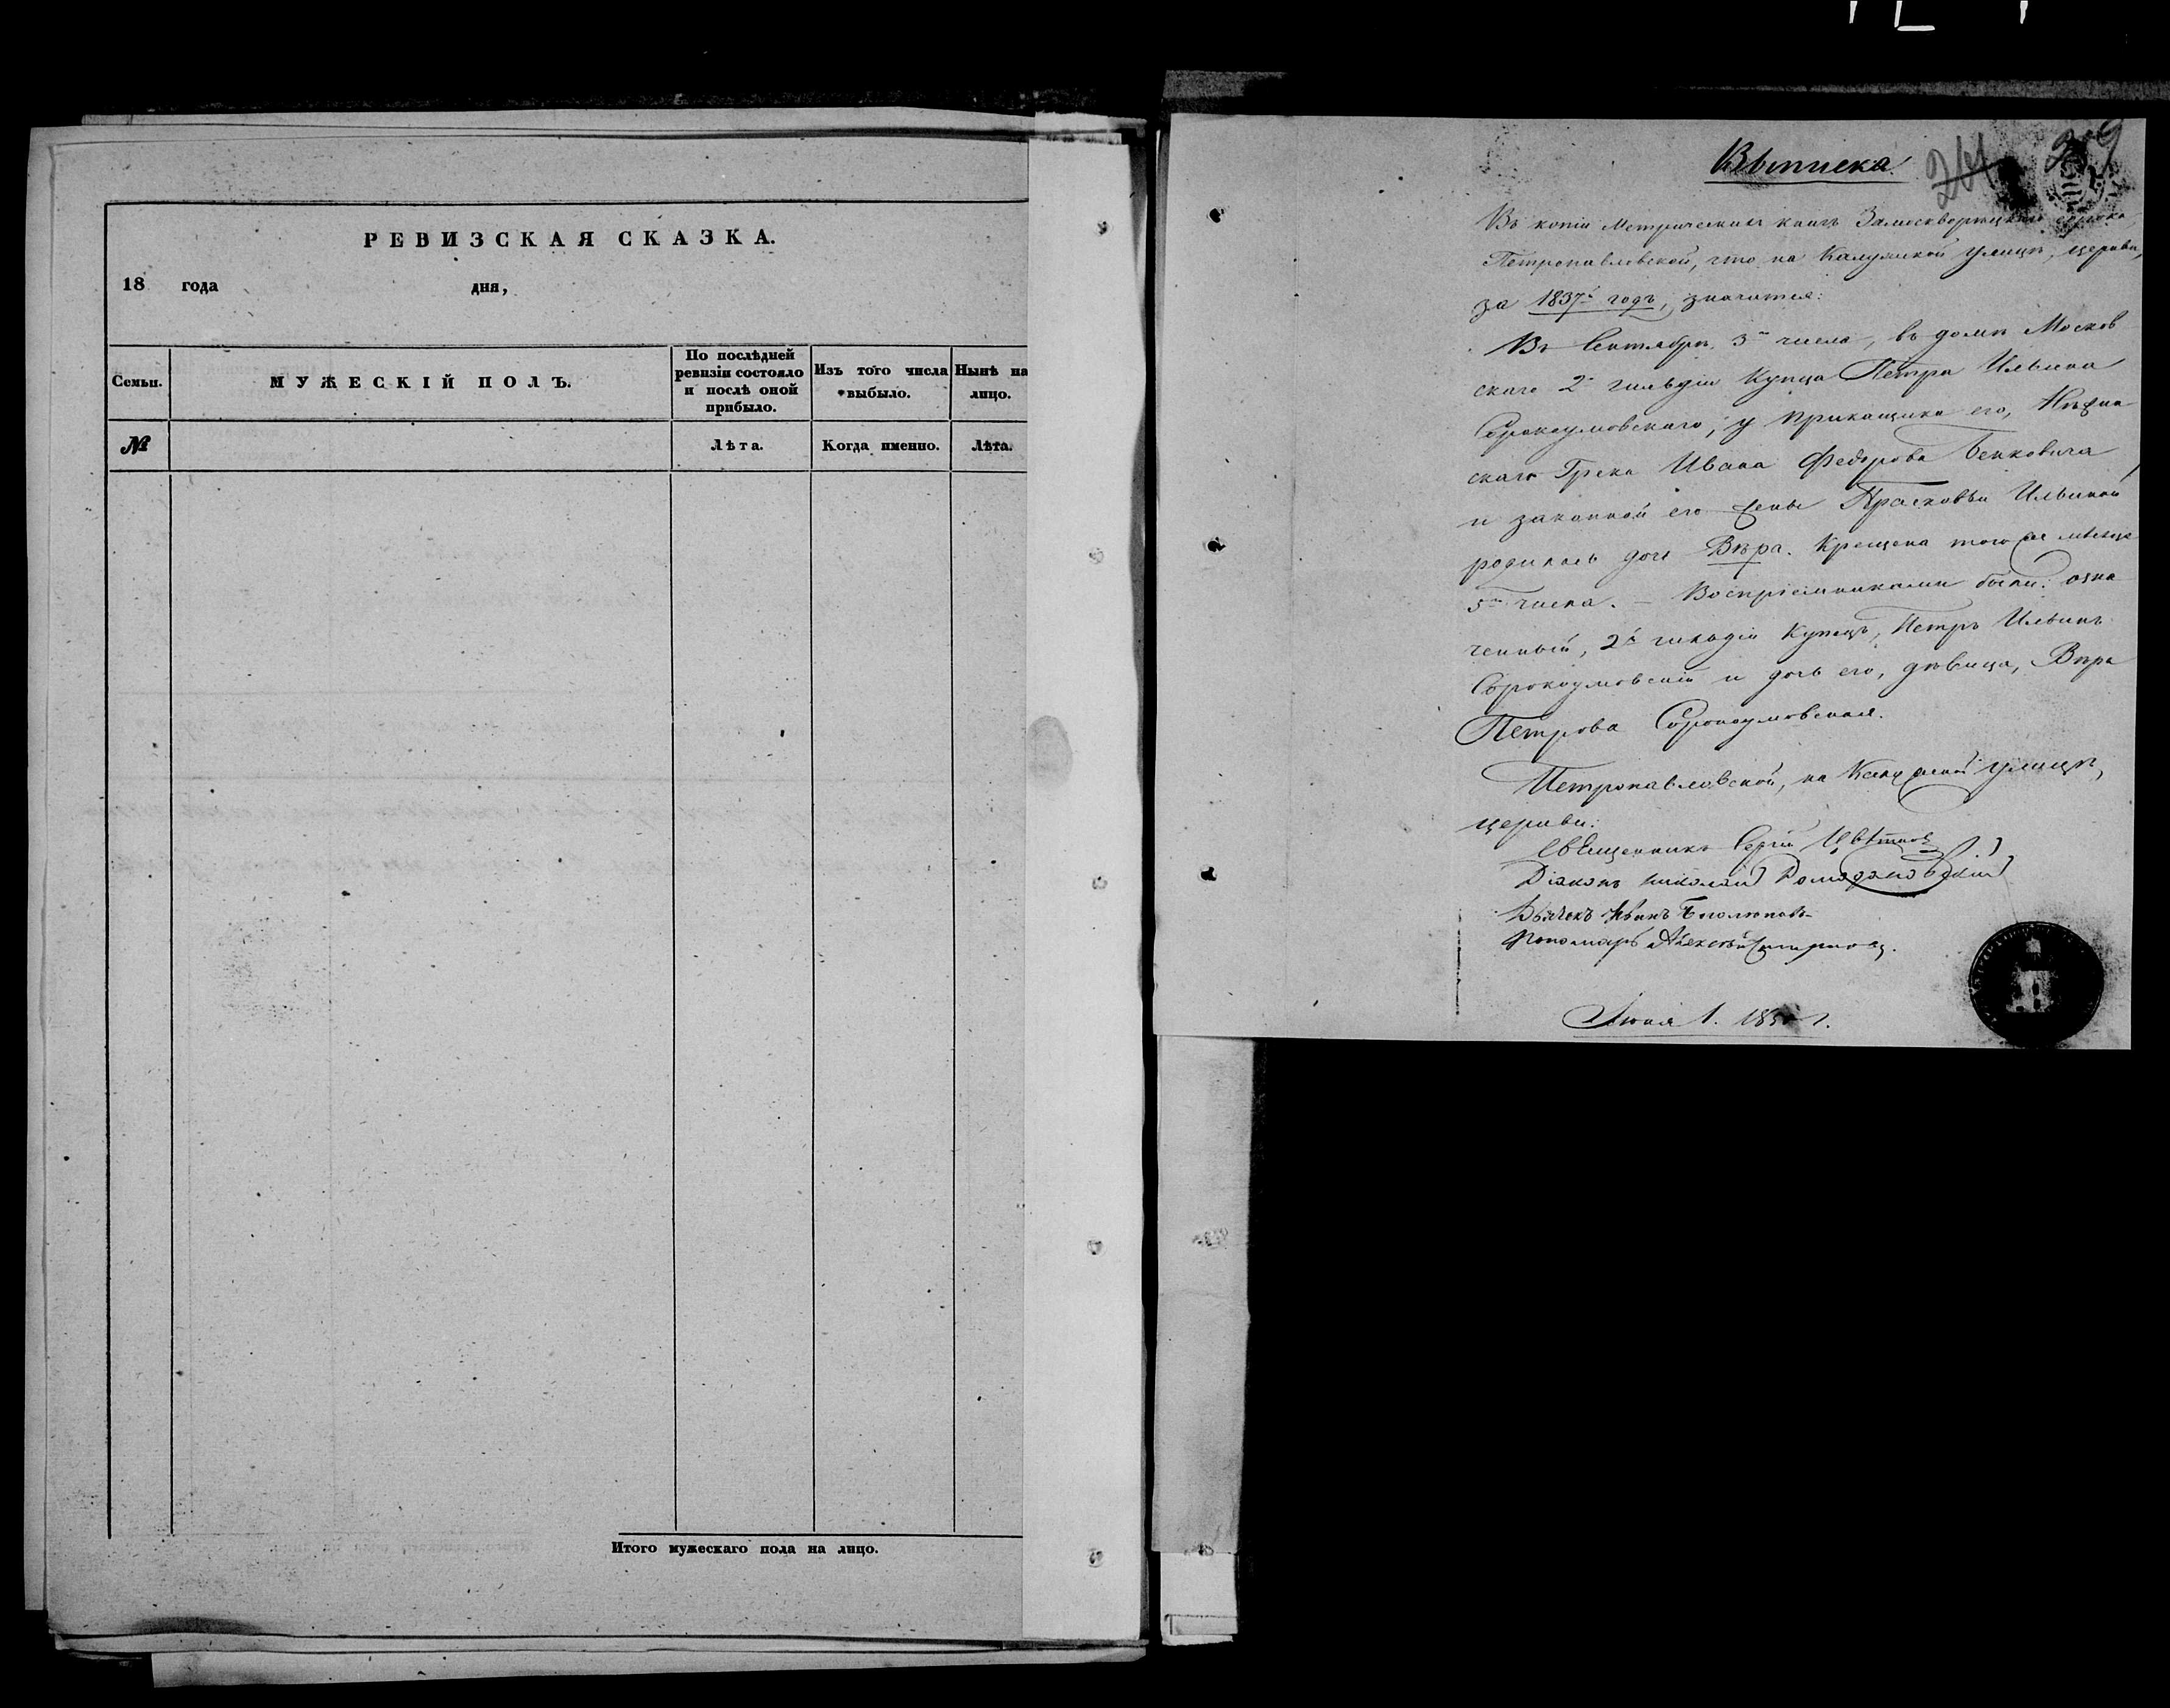 РЕВИЗСКАЯ СКАЗКА.
18 года дня,
Семьи.
МУЖЕСКІЙ ПОЛЪ.
По послѣдней
ревизіи состояло
и послѣ оной
прибыло.
Изъ того числа
выбыло.
Нынѣ на
лицо.
№
Лѣта.
Когда именно.
Лѣта.
Итого мужескаго пола на лицо.
Выписка.
261
Въ копіи Метрическихъ книгъ Замоскворѣцкаго сорока,
Петропавловской, что на Калужской улицѣ, церкви,
за 1837й годъ, значится:
Въ Сентябрѣ 3го числа, въ домѣ Москов
скаго 2й гильдіи Купца Петра Ильина
Сорокоумовскаго, у прикащика его, Нѣжин
скаго Грека Ивана Федорова Бенковича
и законной его жены Прасковьи Ильиной
родилась дочь Вѣра. Крещена того же мѣсяца
5го числа. – Воспріемниками были: озна
ченный, 2й гильдіи Купецъ, Петръ Ильинъ
Сорокоумовскій и дочь его, дѣвица, Вѣра
Петрова Сорокоумовская.
Петропавловской, на Калужской улицѣ,
церкви:
Священникъ Сергій Цвѣтковъ
Діаконъ Николай Ромодановскій
Дьячекъ Иванъ
Пономарь Алексѣй Смирновъ.
Іюня 1. 18 г.